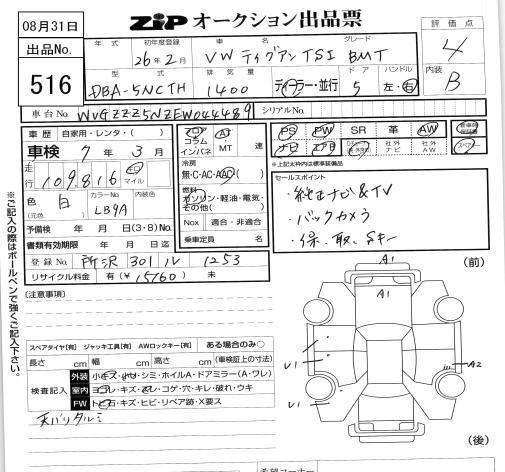 08月31日
出品No.
516
ZIP オークション出品票
評価点
4
内装
B
年式 初年度登録 車名 グレード
26年2月 VW ティグアン TSI BMT
型式 排気量 ドア ハンドル
DBA-5NCTH 1400 ディーラー・並行 5 左・右
車台No. WVGZZZ5NZEW044489 シリアルNo.
車歴 自家用・レンタ・( )
車検 7年3月
走行 109,816 キロ マイル
色 白 (元色) カラーNo. LB9A 内装色
予備検 年 月 日(3・8)No.
書類有効期限 年 月 日迄
登録No. 所沢 301 ル 1253
リサイクル料金 有(¥15760) 未
フロア AT
コラム
インパネ MT 速
冷房
無・C・AC・AAC
燃料
ガソリン・軽油・電気・
その他( )
Nox 適合・非適合
乗車定員 名
PS PW SR 革 AW
ナビ エアB 社外ナビ 社外AW
スペアキー
※上記太枠内は標準装備品
セールスポイント
・純正ナビ&TV
・バックカメラ
・保、取、Sキー
(注意事項)
スペアタイヤ[有] ジャッキ工具[有] AWロックキー[有] ある場合のみ○
長さ cm 幅 cm 高さ cm (車検証上の寸法)
検査記入
外装 小キズ・小凹・シミ・ホイルA・ドアミラー(A・ワレ)
室内 ヨゴレ・キズ・スレ・コゲ・穴・キレ・破れ・ウキ
FW トビ石・キズ・ヒビ・リペア跡・X要ス
天バリタルミ
(前)
A1
A1
U1
A2
U1
(後)
※ご記入の際はボールペンで強くご記入下さい。
希望コーナー